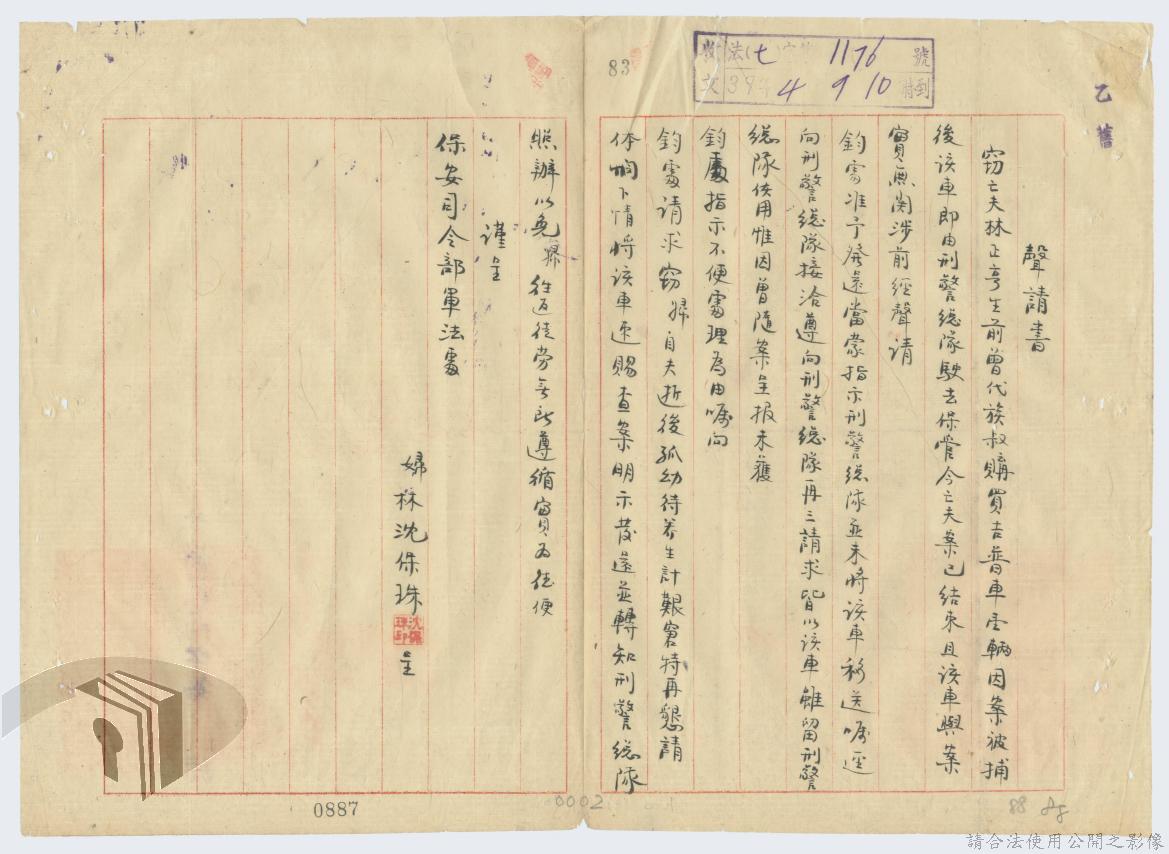 收文 法(七)字第1176號
39年4月9日10時到
乙
舊
83
聲請書
窃亡夫林正亨生前曾代族叔購買吉普車壹輛因案被捕
後该車即由刑警總隊駛去保管今亡夫案已结束且该車與案
實無関涉前經聲请
鈞處准予發還當蒙指示刑警總隊並未將该車移送嘱逕
向刑警總隊接洽遵向刑警總隊再三請求皆以该車雖留刑警
總隊使用惟因曾隨案呈报未獲
鈞處指示不便處理為由嘱向
鈞處请求窃婦自夫逝後孤幼待养生計艱窘特再懇請
体恤下情將该車迅賜查案明示發還並轉知刑警總隊
照辦以免婦往返徒劳無所遵循實為德便
謹呈
保安司令部軍法處
婦林沈保珠呈
沈保珠印
0887
0002
88
請合法使用公開之影像